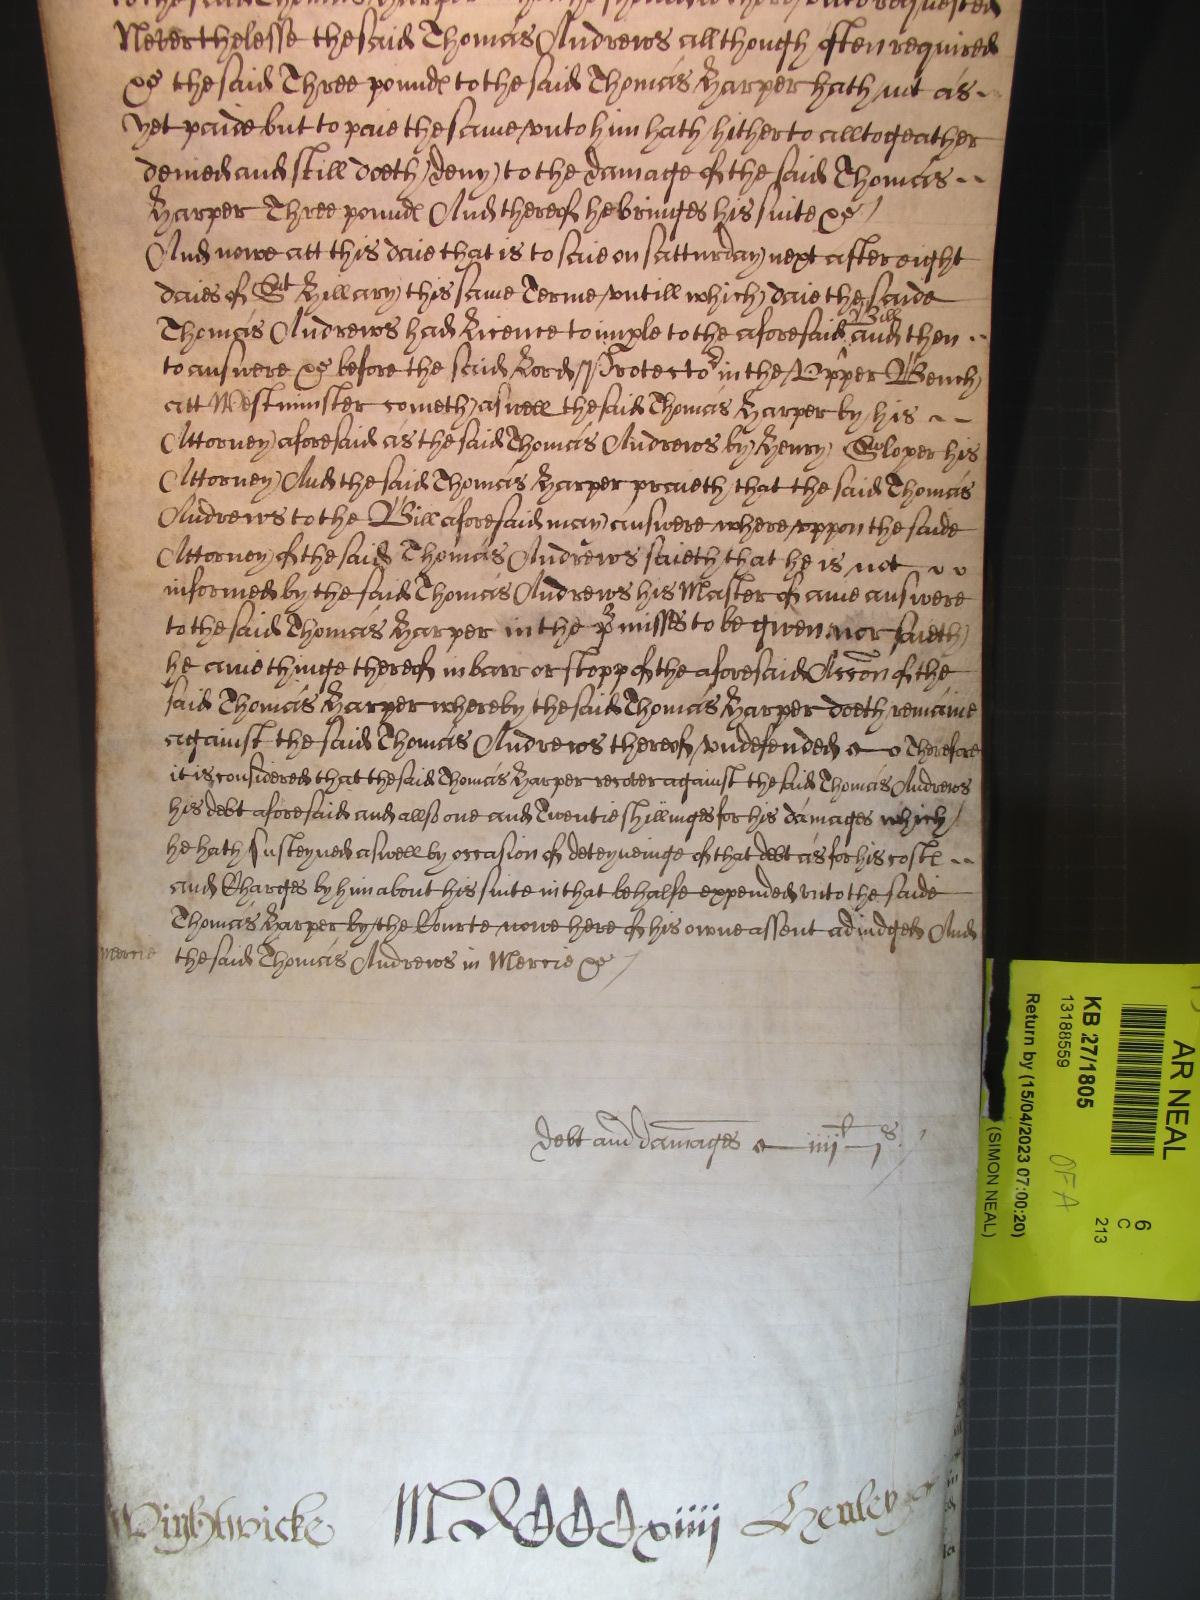 to the said Thomas Harper
Neverthelesse the said Thomas Andrews allthough often required
&c the said Three pound to the said Thomas Harper hath not as
yet paide but to paie the same unto him hath hitherto alltogeather
denied and still doeth deny to the damage of the said Thomas
Harper Three pound And thereof he bringes his suite &c /
And nowe att this daie that is to saie on Satturday next after eight
daies of St Hillary this same Terme untill which daie the saide
Thomas Andrews had Licence to imple to the aforesaid Bill and then
to answere &c before the said Lord Protector in the Upper Bench
att Westminster cometh aswell the said Thomas Harper by his
Attorney aforesaid as the said Thomas Andrews by Henry Sloper his
Attorney And the said Thomas Harper prayeth that the said Thomas
Andrews to the Bill aforesaid may answere whereuppon the saide
Attorney of the said Thomas Andrews saieth that he is not
informed by the said Thomas Andrews his Master of anie answere
to the said Thomas Harper in the pmisses to be given nor saieth
he anie thinge thereof in barr or stopp of the aforesaid Accon of the
said Thomas Harper whereby the said Thomas Harper doeth remaine
against the said Thomas Andrews thereof undefended Therefore
it is considered that the said Thomas Harper recover against the said Thomas Andrews
his debt aforesaid and allso one and Twentie shillinges for his damages which
he hath susteyned aswell by occasion of deteyneinge of that debt as for his cost
and Charges by him about his suite in that behalfe expended unto the saide
Thomas Harper by the Courte nowe here of his owne assent adiudged And
Mercie the said Thomas Andrews in Mercie &c /
debt and damages iiijl js /
Wightwicke MDCCCxiiij Henley
AR NEAL
KB 27/1805
13188559
Return by (15/04/2023 07:00:20)
(SIMON NEAL)
OFA
6
C
213